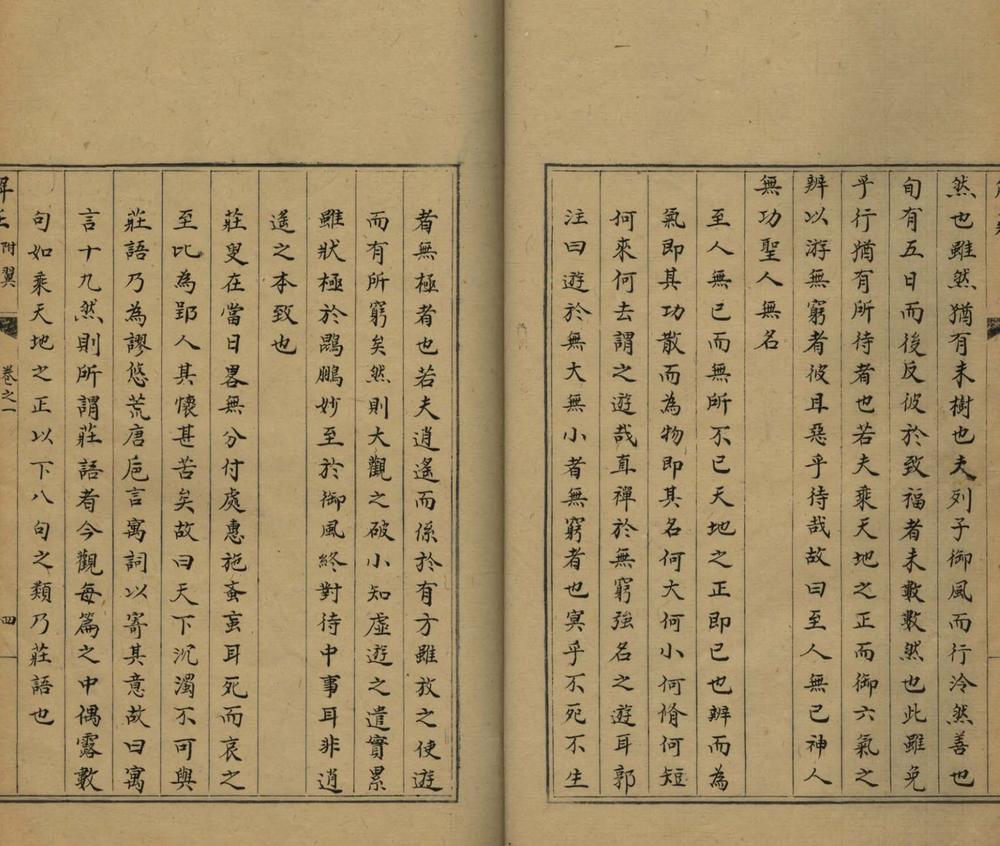 然也雖然猶有未樹也夫列子御風而行泠然善也
旬有五日而後反彼於致福者未數數然也此雖免
乎行猶有所待者也若夫乘天地之正而御六氣之
辨以游無窮者彼且惡乎待哉故曰至人無已神人
無功聖人無名
至人無已而無所不已天地之正即已也辨而為
氣即其功散而為物即其名何大何小何脩何短
何來何去謂之遊哉直禪於無窮強名之遊耳郭
注曰遊於無大無小者無窮者也冥乎不死不生
者無極者也若夫逍遙而係於有方雖放之使遊
而有所窮矣然則大觀之破小知虛遊之遣實累
雖狀極於鵾鵬妙至於御風終對待中事耳非逍
遙之本致也
莊叟在當日畧無分付處惠施蚉䖟耳死而哀之
至比為郢人其懷甚苦矣故曰天下沉濁不可與
莊語乃為謬悠荒唐巵言寓詞以寄其意故曰寓
言十九然則所謂莊語者今觀每篇之中偶露數
句如乘天地之正以下八句之類乃莊語也
解莊 附翼 卷之一 四